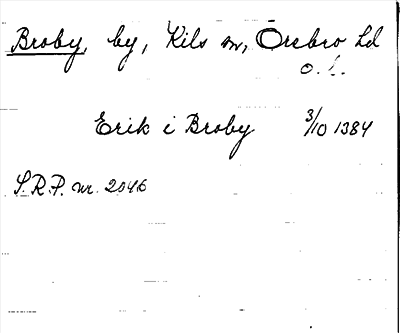 Broby, by, Kils sn, Örebro Ld
Ö.L.
Erik i Broby 3/10 1384
S.R.P. nr. 2046